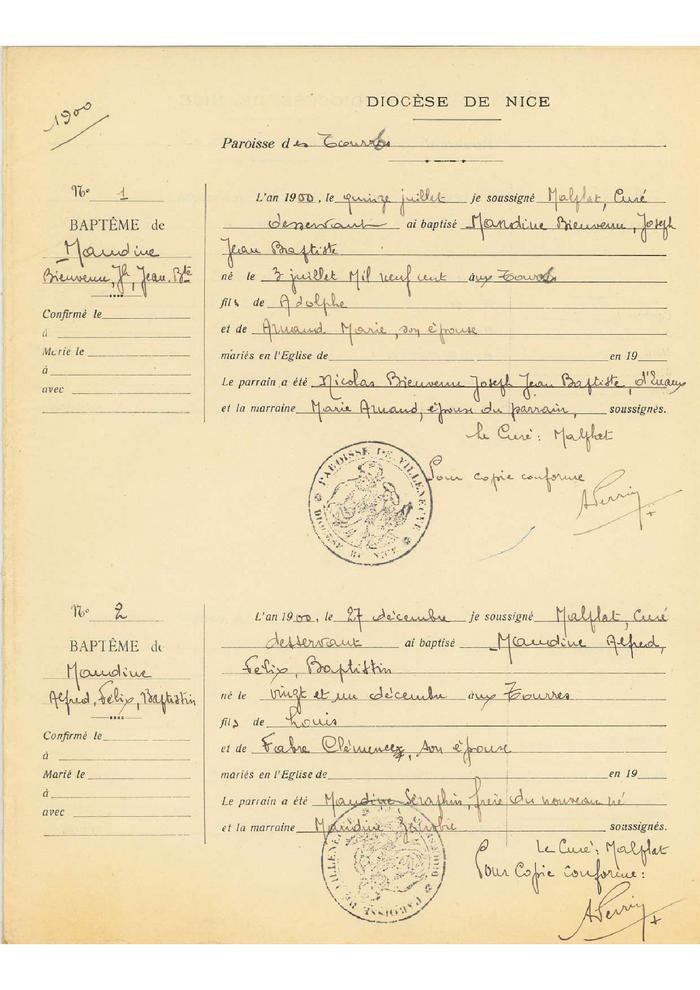 1900
DIOCÈSE DE NICE
Paroisse des Tourres
Nº 1
BAPTÊME de
Maudine
Bienvenu, Jh, Jean Bte
Confirmé le
à
Marié le
à
avec
L'an 1900, le quinze juillet je soussigné Malplat, Curé
desservant ai baptisé Maudine Bienvenu, Joseph
Jean Baptiste
né le 3 juillet Mil neuf cent aux Tourres
fils de Adolphe
et de Arnaud Marie, son épouse
mariés en l'Eglise de en 19
Le parrain a été Nicolas Bienvenu Joseph Jean Baptiste,
et la marraine Marie Arnaud, épouse du parrain, soussignés.
le Curé: Malplat
Pour copie conforme
A Perrin
PAROISSE DE VILLENEUVE
DIOCÈSE DE NICE
Nº 2
BAPTÊME de
Maudine
Alfred, Félix, Baptistin
Confirmé le
à
Marié le
à
avec
L'an 1900, le 27 décembre je soussigné Malplat, Curé
desservant ai baptisé Maudine Alfred,
Félix, Baptistin
né le vingt et un décembre aux Tourres
fils de Louis
et de Fabre Clémence, son épouse
mariés en l'Eglise de en 19
Le parrain a été Maudine Séraphin, frère du nouveau né
et la marraine Maudine soussignés.
Le Curé: Malplat
Pour copie conforme:
A Perrin
PAROISSE DE VILLENEUVE